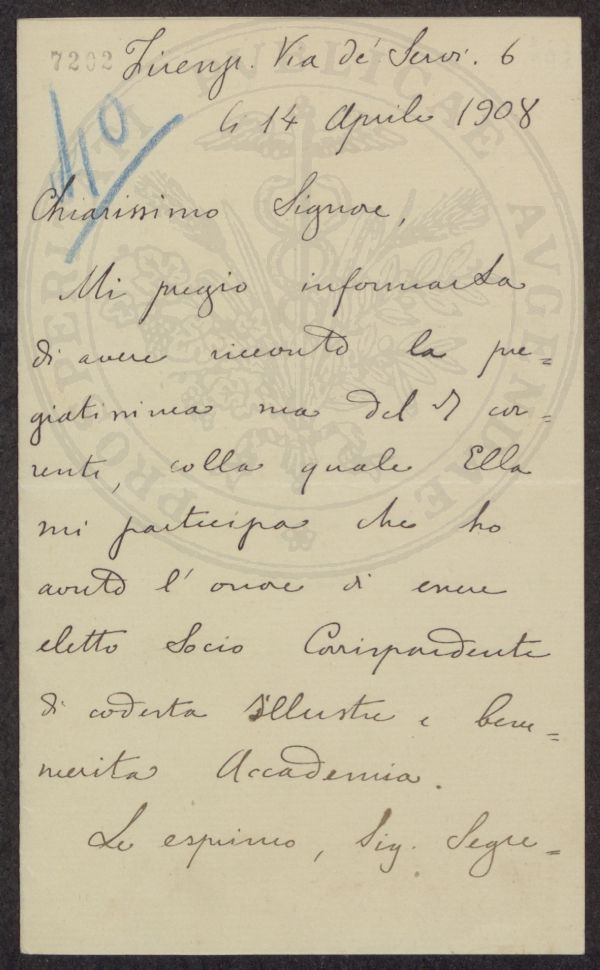 7202
Firenze. Via de' Servi. 6
li 14 Aprile 1908
Chiarissimo Signore,
Mi pregio informarLa
di avere ricevuto la pre=
giatissima sua del 7 cor=
rente, colla quale Ella
mi partecipa che ho
avuto l'onore di essere
eletto Socio Corrispondente
di codesta illustre e bene=
merita Accademia.
Le esprimo, Sig. Segre=
PROSPERITATI PVBLICAE AVGENDAE